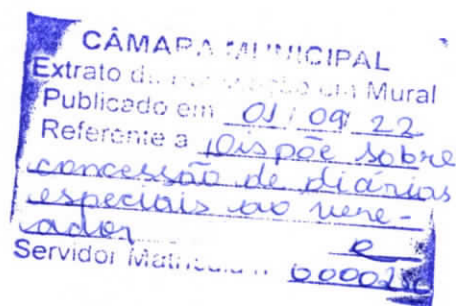 CÂMARA MUNICIPAL
Extrato de em Mural
Publicado em 01/09/22
Referente a Dispõe sobre
concessão de diárias
especiais ao vere-
ador
Servidor Matrícula